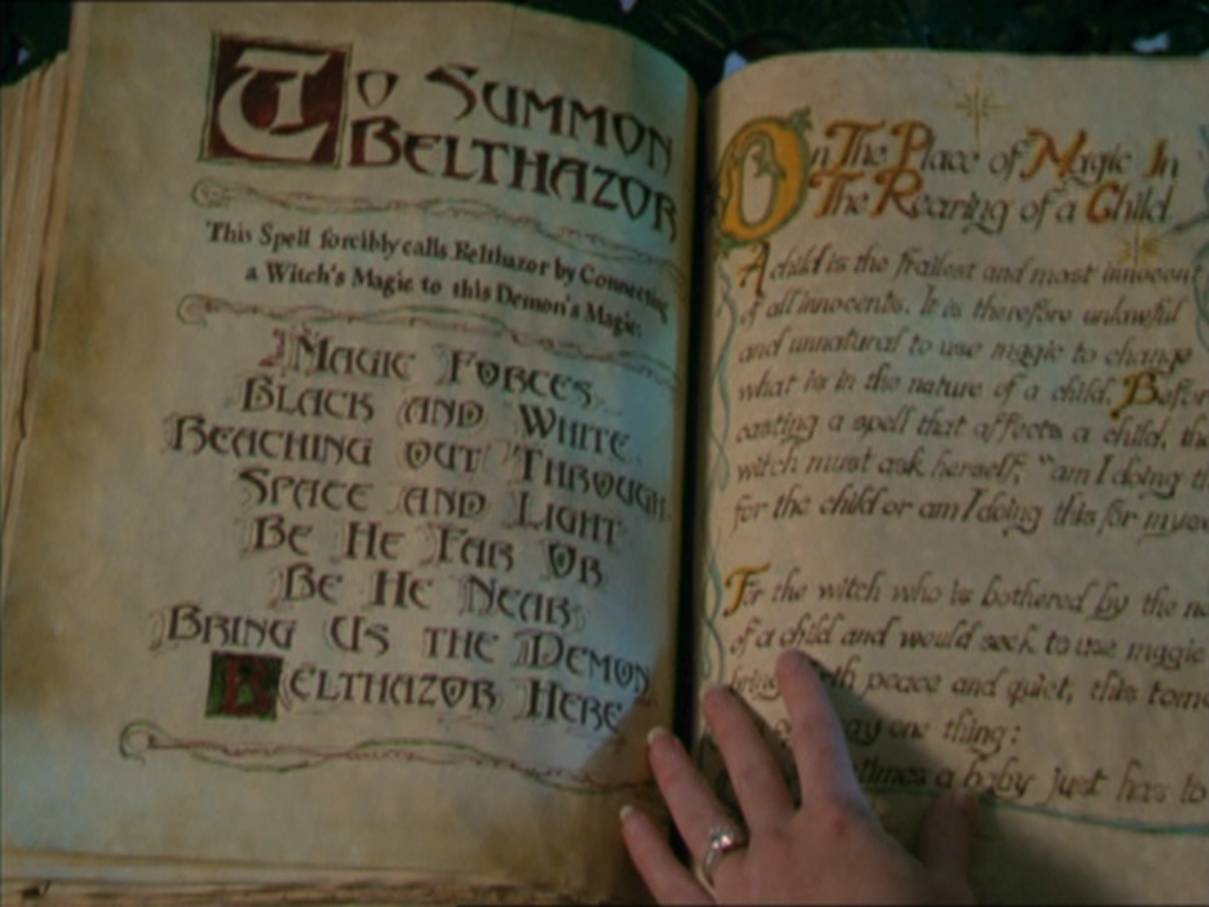 To Summon
Belthazor
This Spell forcibly calls Belthazor by Connecting
a Witch's Magic to this Demon's Magic:
Magic Forces
Black and White
Reaching out Through
Space and Light
Be He Far Or
Be He Near
Bring Us the Demon
Belthazor Here
On The Place of Magic In
The Rearing of a Child
A child is the frailest and most innocent
of all innocents. It is therefore unlawful
and unnatural to use magic to change
what is in the nature of a child. Befor
casting a spell that affects a child, the
witch must ask herself, "am I doing th
for the child or am I doing this for myse
For the witch who is bothered by the no
of a child and would seek to use magic
peace and quiet, this tome
ay one thing:
times a baby just has to